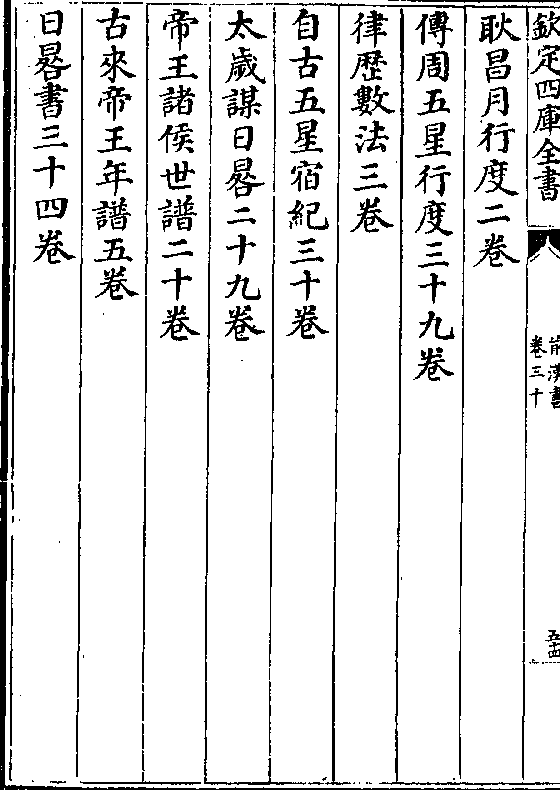 欽定四庫全書
前漢書
卷三十
五十四
耿昌月行度二卷
傳周五星行度三十九卷
律歴數法三卷
自古五星宿紀三十卷
太歲謀日晷二十九卷
帝王諸侯世譜二十卷
古來帝王年譜五卷
日晷書三十四卷